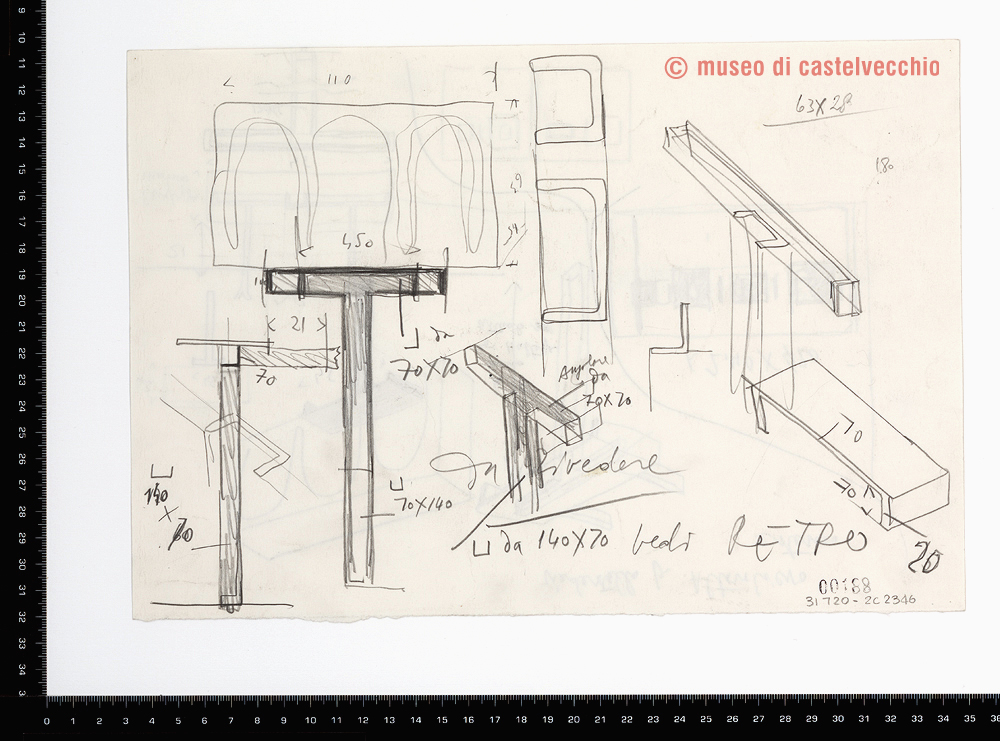 © museo di castelvecchio
110
63X28
180
450
< 21 >
⊔ da
70X70
70
Angolare
da
70X70
da rivedere
70
70
⊔
140
X
70
⊔
70X140
⊔ da 140X70 vedi RETRO
20
00188
31720-2C2346
9
10
11
12
13
14
15
16
17
18
19
20
21
22
23
24
25
26
27
28
29
30
31
32
33
34
0 1 2 3 4 5 6 7 8 9 10 11 12 13 14 15 16 17 18 19 20 21 22 23 24 25 26 27 28 29 30 31 32 33 34 35